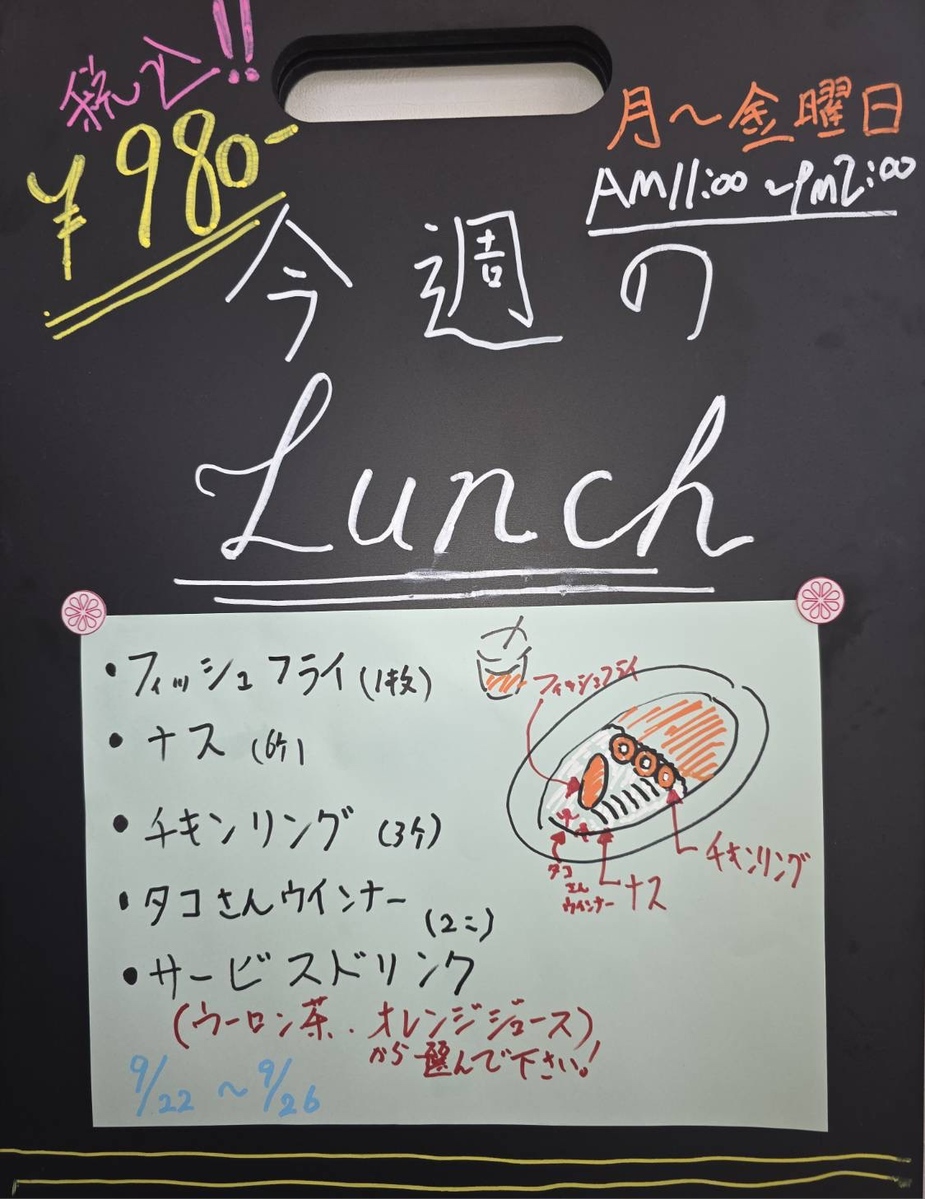 税込!!
¥980-
月～金曜日
AM11:00～PM2:00
今週の
Lunch
・フィッシュフライ(1枚)
・ナス(6ケ)
・チキンリング(3ケ)
・タコさんウインナー(2こ)
・サービスドリンク
(ウーロン茶・オレンジジュース)
から選んで下さい!
9/22～9/26
フィッシュフライ
チキンリング
ナス
タコ
さん
ウインナー